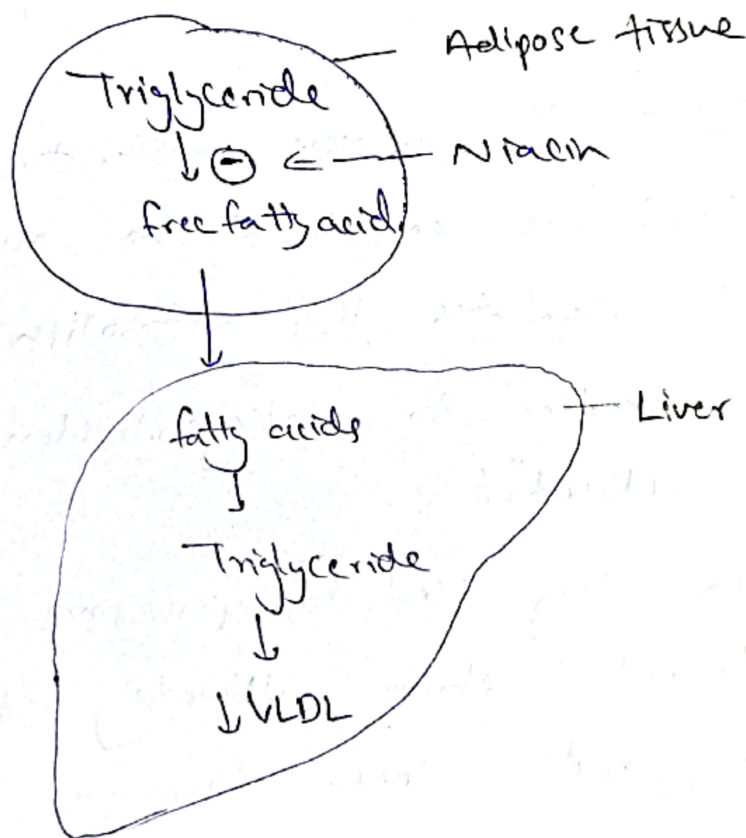 Adipose tissue
Triglyceride
↓ ⊖ ← Niacin
free fatty acid.
↓
fatty acids
Liver
↓
Triglyceride
↓
↓ VLDL